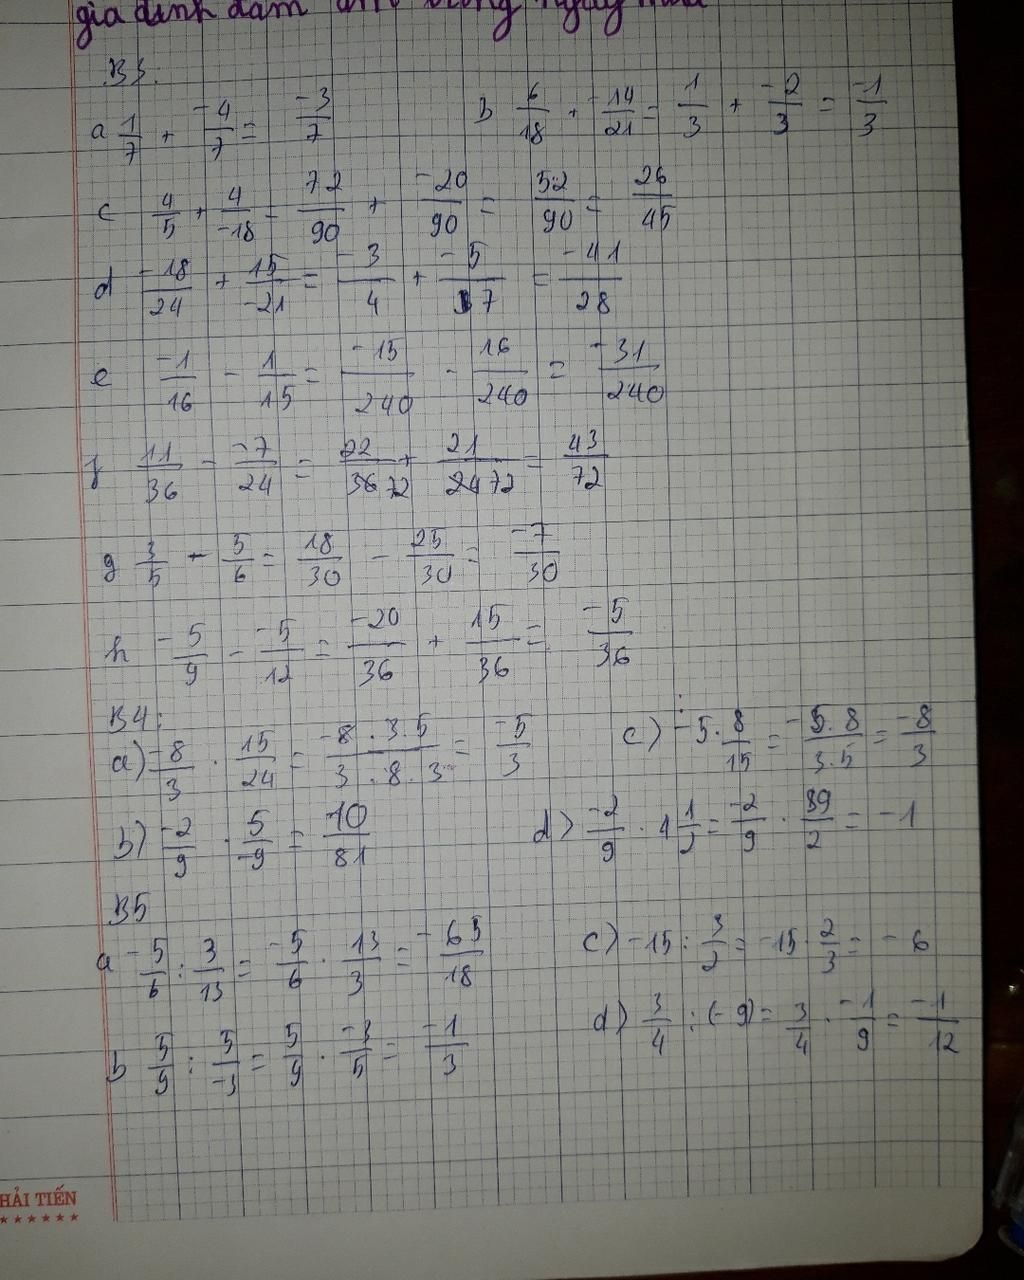 gia đình đầm
B3:
a 1/7 + -4/7 = -3/7
b 6/18 + -14/21 = 1/3 + -2/3 = -1/3
c 4/5 + 4/-18 = 72/90 + -20/90 = 52/90 = 26/45
d -18/24 + 15/-21 = -3/4 + -5/7 = -41/28
e -1/16 - 1/15 = -15/240 - 16/240 = -31/240
f 11/36 - -7/24 = 22/72 + 21/72 = 43/72
g 3/5 - 5/6 = 18/30 - 25/30 = -7/30
h -5/9 - -5/12 = -20/36 + 15/36 = -5/36
B4:
a) -8/3 . 15/24 = -8.3.5/3.8.3 = -5/3
c) -5.8/15 = -5.8/3.5 = -8/3
b) -2/9 . 5/-9 = 10/81
d) -2/9 . 4 1/2 = -2/9 . 9/2 = -1
B5
a -5/6 : 3/13 = -5/6 . 13/3 = -65/18
c) -15 : 3/2 = -15 . 2/3 = -6
b 5/9 : 5/-3 = 5/9 . -3/5 = -1/3
d) 3/4 : (-9) = 3/4 . -1/9 = -1/12
HẢI TIẾN